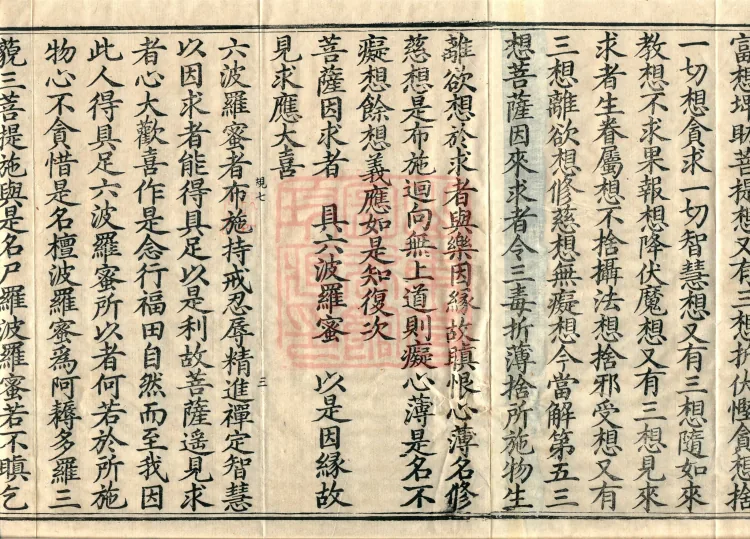 富想增助菩提想又有三想折伏慳貪想捨
一切想貪求一切智慧想又有三想隨如來
教想不求果報想降伏魔想又有三想見來
求者生眷屬想不捨攝法想捨邪受想又有
三想離欲想修慈想無癡想今當解第五三
想菩薩因來求者令三毒折薄捨所施物生
離欲想於求者與樂因緣故瞋恨心薄名修
慈想是布施迴向無上道則癡心薄是名不
癡想餘想義應如是知復次
菩薩因求者 具六波羅蜜 以是因緣故
見求應大喜
規七 三
六波羅蜜者布施持戒忍辱精進禪定智慧
以因求者能得具足以是利故菩薩遥見求
者心大歡喜作是念行福田自然而至我因
此人得具足六波羅蜜所以者何若於所施
物心不貪惜是名檀波羅蜜爲阿耨多羅三
藐三菩提施與是名尸羅波羅蜜若不瞋乞